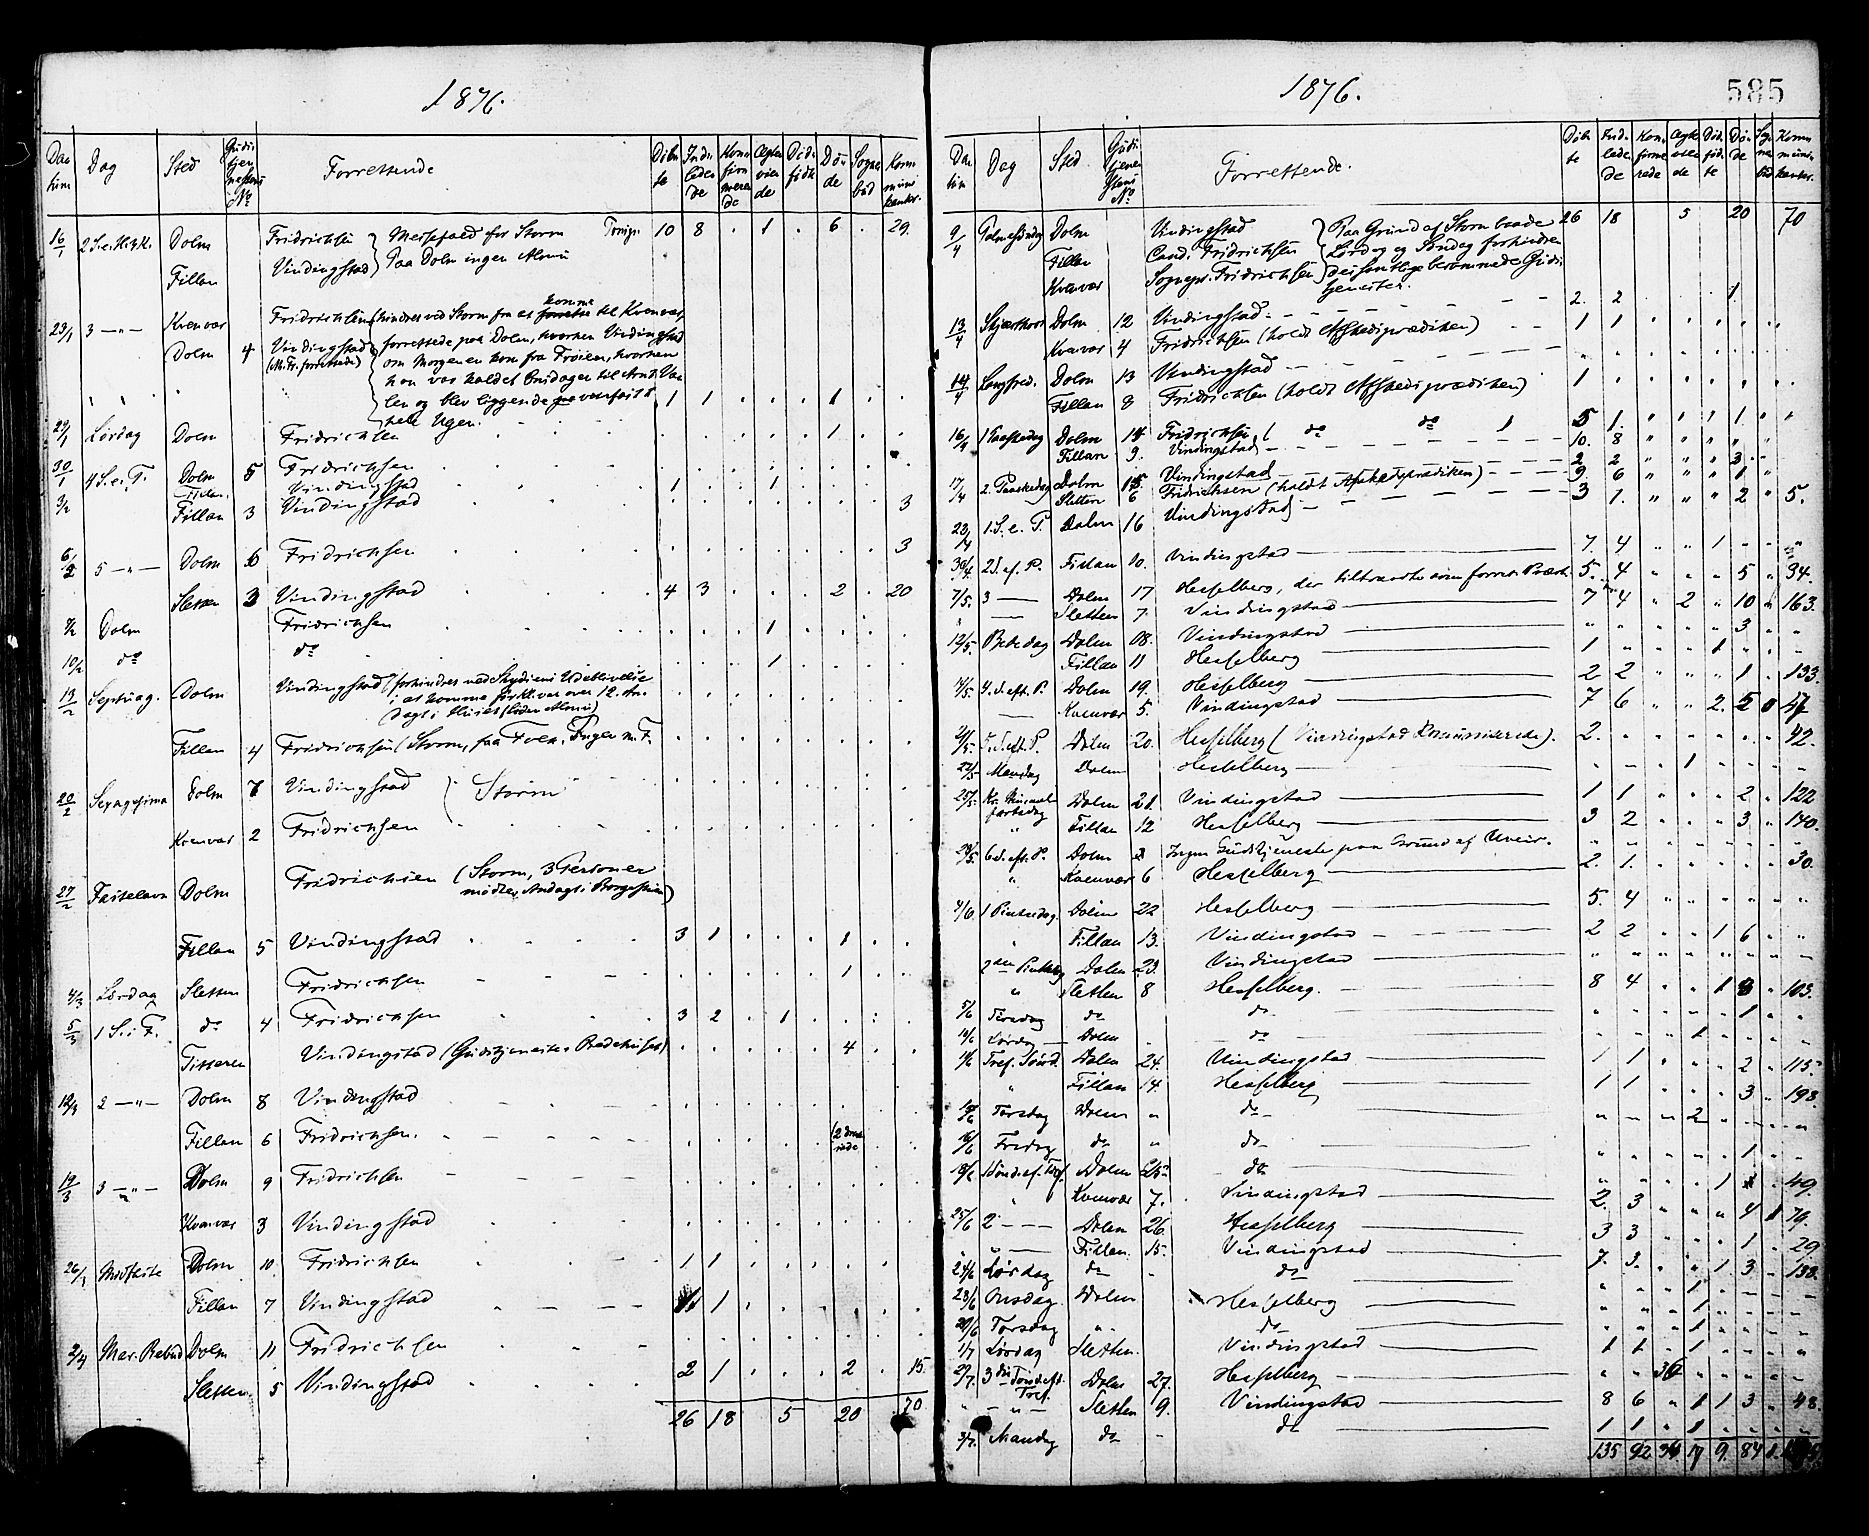 1876.
Datum Dag Sted Gudstjenestens No Forrettende Døbte Indledede Konfirmerede Ægteviede Dødfødte Døde Sognebud Kommunikanter
16/1 2 S. e. H.3.K. Dolm Fridrichsen Messefald for Storm 10 8 . 1 . 6 . 29.
Fillan Vindingstad Paa Dolm ingen Almue
23/1 3 — " — Kvenvær Fridrichsen (hindres ved Storm fra at komme til Kvenvær,
Dolm 4 Vindingstad forrettede paa Dolm, hvorhen Vindingstad
(M. Fr. forrettede) om Morgenen kom fra Frøien, hvorhen
han var kaldet Onsdagen til
len og blev liggende veirfast 1 1 . . . 1 . .
hele Ugen.
29/1 Lørdag Dolm Fridrichsen 1
30/1 4 S. e. T. Dolm 5 Fridrichsen
Fillan Vindingstad 1 . . 1
2/2 Fillan 3 Vindingstad 3
6/2 5 — " — Dolm 6 Fridrichsen 3
Sletten 3 Vindingstad 4 3 . . . 2 . 20
9/2 Dolm Fridrichsen 1
10/2 do do 1
13/2 Septuag. Dolm Vindingstad (forhindres ved Skydsens Udeblivelse
i at komme før Kl. var over 12. An-
dagt i Huset (liden Almue)
Fillan 4 Fridrichsen (Storm, faa Folk, Ingen M. F.
20/2 Sexagesima Dolm 7 Vindingstad Storm
Kvenvær 2 Fridrichsen
27/2 Fastelavn Dolm Fridrichsen (Storm, 3 Personer
mødte, Andagt i Borgestuen)
Fillan 5 Vindingstad 3 1 . . . 1 . .
4/3 Lørdag Sletten Fridrichsen 1
5/3 1 S. i F. do 4 Fridrichsen 3 2 . 1
Titteren Vindingstad (Gudstjeneste i Bedehuset) 4
12/3 2 — " — Dolm 8 Vindingstad
Fillan 6 Fridrichsen. (2 druk-
nede
19/3 3 — " — Dolm 9 Fridrichsen
Kvenvær 3 Vindingstad
26/3 Midfaste Dolm 10 Fridrichsen 1 1
Fillan 7 Vindingstad 1
2/4 Mar. Bebud Dolm 11 Fridrichsen
Sletten 5 Vindingstad 2 1 . . . 2 . 15.
26 18 5 20 70
1876.
585
Datum Dag Sted Gudstjenestens No Forrettende. Døbte Indledede Konfirmerede Ægteviede Dødfødte Døde Sognebud Kommunikanter
9/4 Palmesøndag Dolm Vindingstad Paa Grund af Storm baade 26 18 5 20 70
Fillan Cand. Fridrichsen Lørdag og Søndag forhindredes
Kvenvær Sognepr. Fridrichsen de samtlige berammede Guds-
tjenester.
13/4 Skjærthors Dolm 12 Vindingstad 2. 2 1
Kvenvær 4 Fridrichsen (holdt Afskedsprædiken) 1 1
14/4 Langfred. Dolm 13 Vindingstad
Fillan 8 Fridrichsen (holdt Afskedsprædiken) 1
16/4 1 Paaskedag Dolm 14 Fridrichsen ( do do ) 5 1. " " " 1 " "
Fillan 9. Vindingstad 10. 8
17/4 2. Paaskedag Dolm 15 Vindingstad 2 2 " " " 3
Sletten 6 Fridrichsen (holdt Afskedsprædiken) 9. 6 " " " 1 "
23/4 1. S. e. P. Dolm 16 Vindingstad 3 1. " " " 2 " 5.
30/4 2 S. ef. P. Fillan 10. Vindingstad 7. 4 " " 1
7/5. 3 — Dolm 17 Hesselberg, der tiltraadte som forrett. Præst. 5. 4 " " " 5 " 34.
" — Sletten 7. Vindingstad 7 4 " 2 " 10 " 163.
12/5. Bededag Dolm 18. Vindingstad 3
Fillan 11 Hesselberg 1 " " " 1
14/5. 4. S. eft. P. Dolm 19. Hesselberg 2 2 " " " 1 . 133.
— Kvenvær 5. Vindingstad 7 6 " " 2. 2 47
21/5. 5. S. eft. P. Dolm 20. Hesselberg (Vindingstad Kommunicerede). 2. 42.
22/5 Mandag Dolm Hesselberg 1
25/5. Kr. Himmel-
fartsdag Dolm 21. Vindingstad 1 1 . . . 2 . 122
" Fillan 12 Hesselberg 3 2 . . . 3 . 140.
28/5. 6 S. eft. P. Dolm Ingen Gudstjeneste paa Grund af Uveir.
" Kvenvær 6 Hesselberg 2. 1. 30.
4/6 1 Pintsedag. Dolm 22 Hesselberg 5. 4
" Fillan 13. Vindingstad 2 2 " " 1 6 " "
2den Pintsedag Dolm 23. Vindingstad
" Sletten 8 Hesselberg. 8 4 . . 1 3 . 103.
5/6 Tirsdag do do 1
10/6 Lørdag Dolm do 1
11/6 Tref. Sønd. Dolm 24. Vindingstad 1 1 . . . 2 . 115.
" Fillan 14. Hesselberg 1 1 . . . 3 . 198.
15/6 Torsdag Dolm " do 2
16/6 Fredag do " do 1
18/6 1 Sønd. ef. Tref. Dolm 25. do 1 1 49.
" Kvenvær 7. Vindingstad 2. 3 " " " 4 1 79.
25/6 2 — — Dolm 26. Hesselberg 3 3 1 . 29
" — Fillan. 15. Vindingstad 7. 3. " " 1. 3 . 138.
24/6 Lørdag do do 1
28/6 Onsdag Dolm Hesselberg 1
29/6 Torsdag " do 1
1/7 Lørdag Sletten. Vindingstad 1 1 . 1
2/7. 3die Sønd. eft.
Tref. Dolm 27. Hesselberg " " 36
" — " — Sletten 9. Vindingstad 8 6 " 1 1 3 . 48.
3/7. Mandag do do 1 1 . 1
135 92 17 9. 84